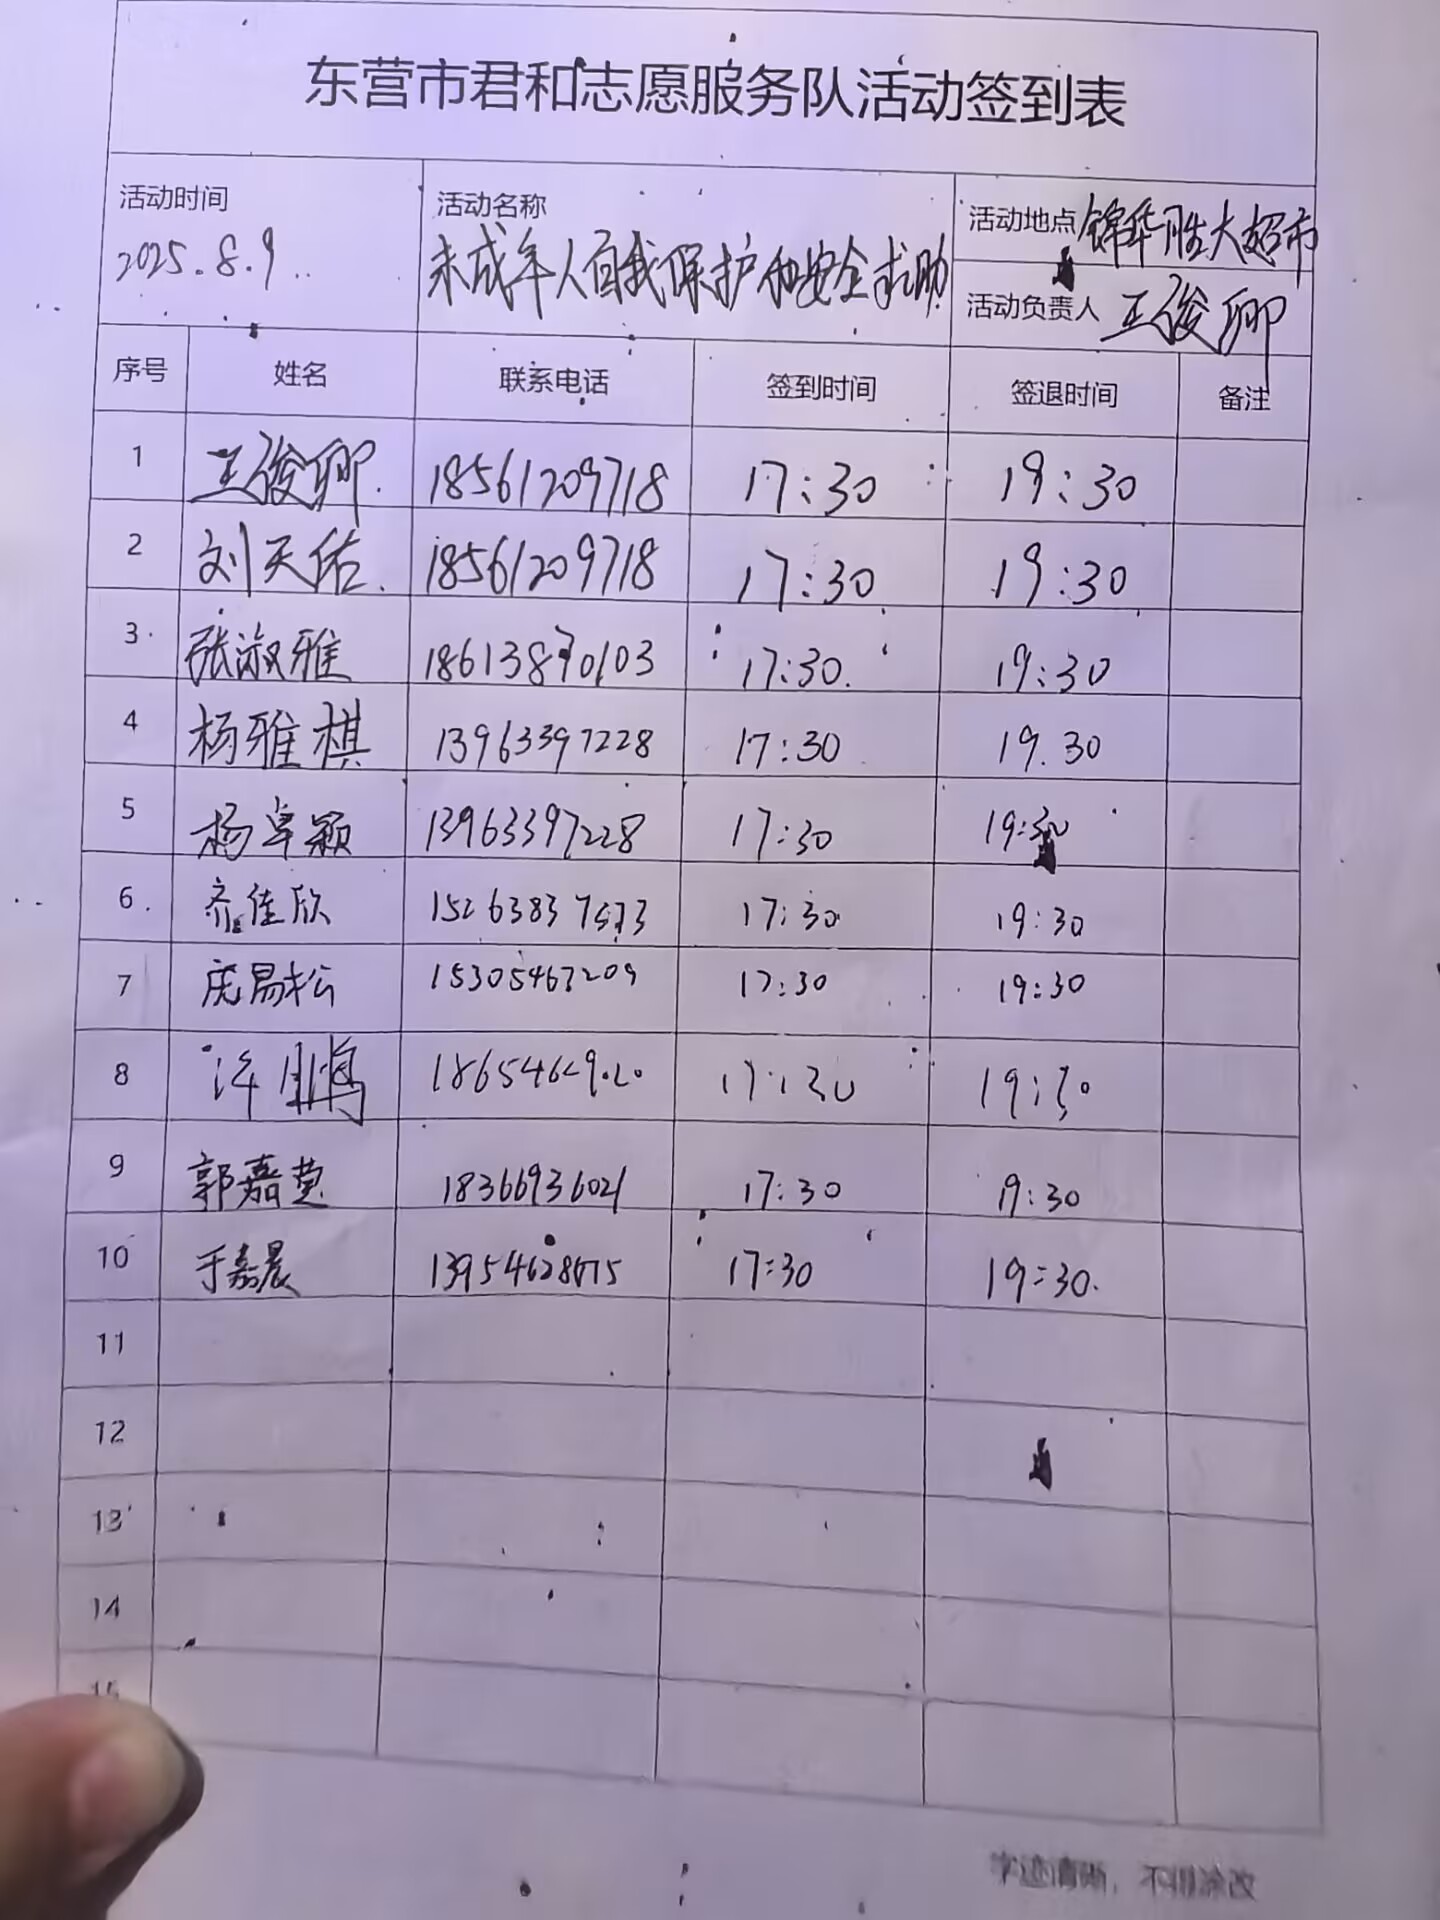 东营市君和志愿服务队活动签到表
活动时间 2025.8.9
活动名称 未成年人自我保护和安全求助
活动地点 锦华胜大超市
活动负责人 王俊卿
序号 姓名 联系电话 签到时间 签退时间 备注
1 王俊卿 18561209718 17:30 19:30
2 刘天佑 18561209718 17:30 19:30
3 张淑雅 18613870103 17:30 19:30
4 杨雅棋 13963397228 17:30 19.30
5 杨卓颖 13963397228 17:30 19:30
6 齐佳欣 15263837573 17:30 19:30
7 庞易松 15305467209 17:30 19:30
8 17:30 19:30
9 郭嘉 18366936021 17:30 19:30
10 于嘉晨 17:30 19:30
11
12
13
14
15
字迹清晰，不得涂改